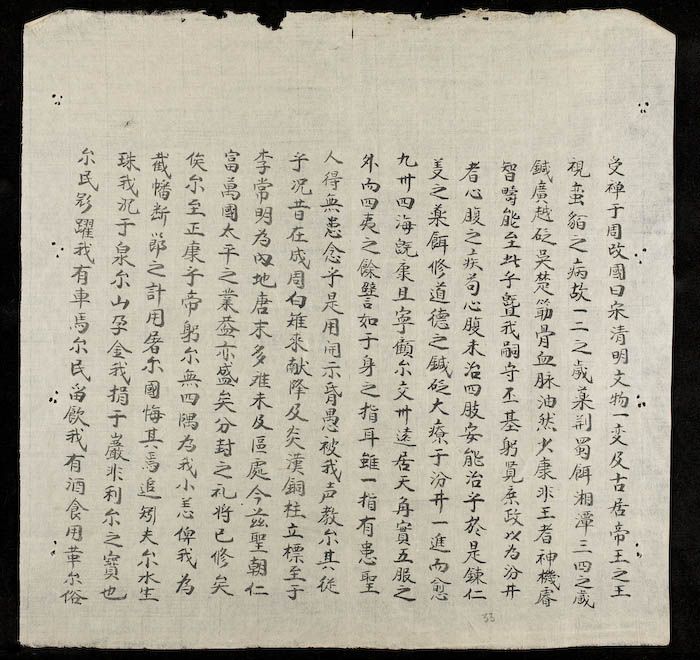 受禅于周改國曰宋清明文物一变及古居帝王之王
視蛮貊之病故一二之歲薬荆蜀餌湘潭三四之歲
鍼廣越砭吴楚筋骨血脉油然少康非王者神機睿
智曷能至此乎曁我嗣守丕基躬覽庶政以為汾井
者心腹之疾苟心腹未治四肢安能治乎於是鍊仁
義之薬餌修道德之鍼砭大療于汾井一進而愈
九州四海既康且寧顧尔交州遠居天角實五服之
外而四夷之餘譬如于身之指耳雖一指有患聖
人得無患念乎是用開示昏愚被我声教尔其從
乎况昔在成周白雉来献降及炎漢銅柱立標至于
李常明為内地唐末多难未及區處今兹聖朝仁
富萬國太平之業益亦盛矣分封之礼将已修矣
俟尔至正康乎帝躬尔無四隅為我小恙俾我為
截幡断節之計用屠尔國悔其焉追矧夫尔水生
珠我沉于泉尔山孕金我捐于巖非利尔之寳也
尔民形躍我有車馬尔民留飲我有酒食用革尔俗
33